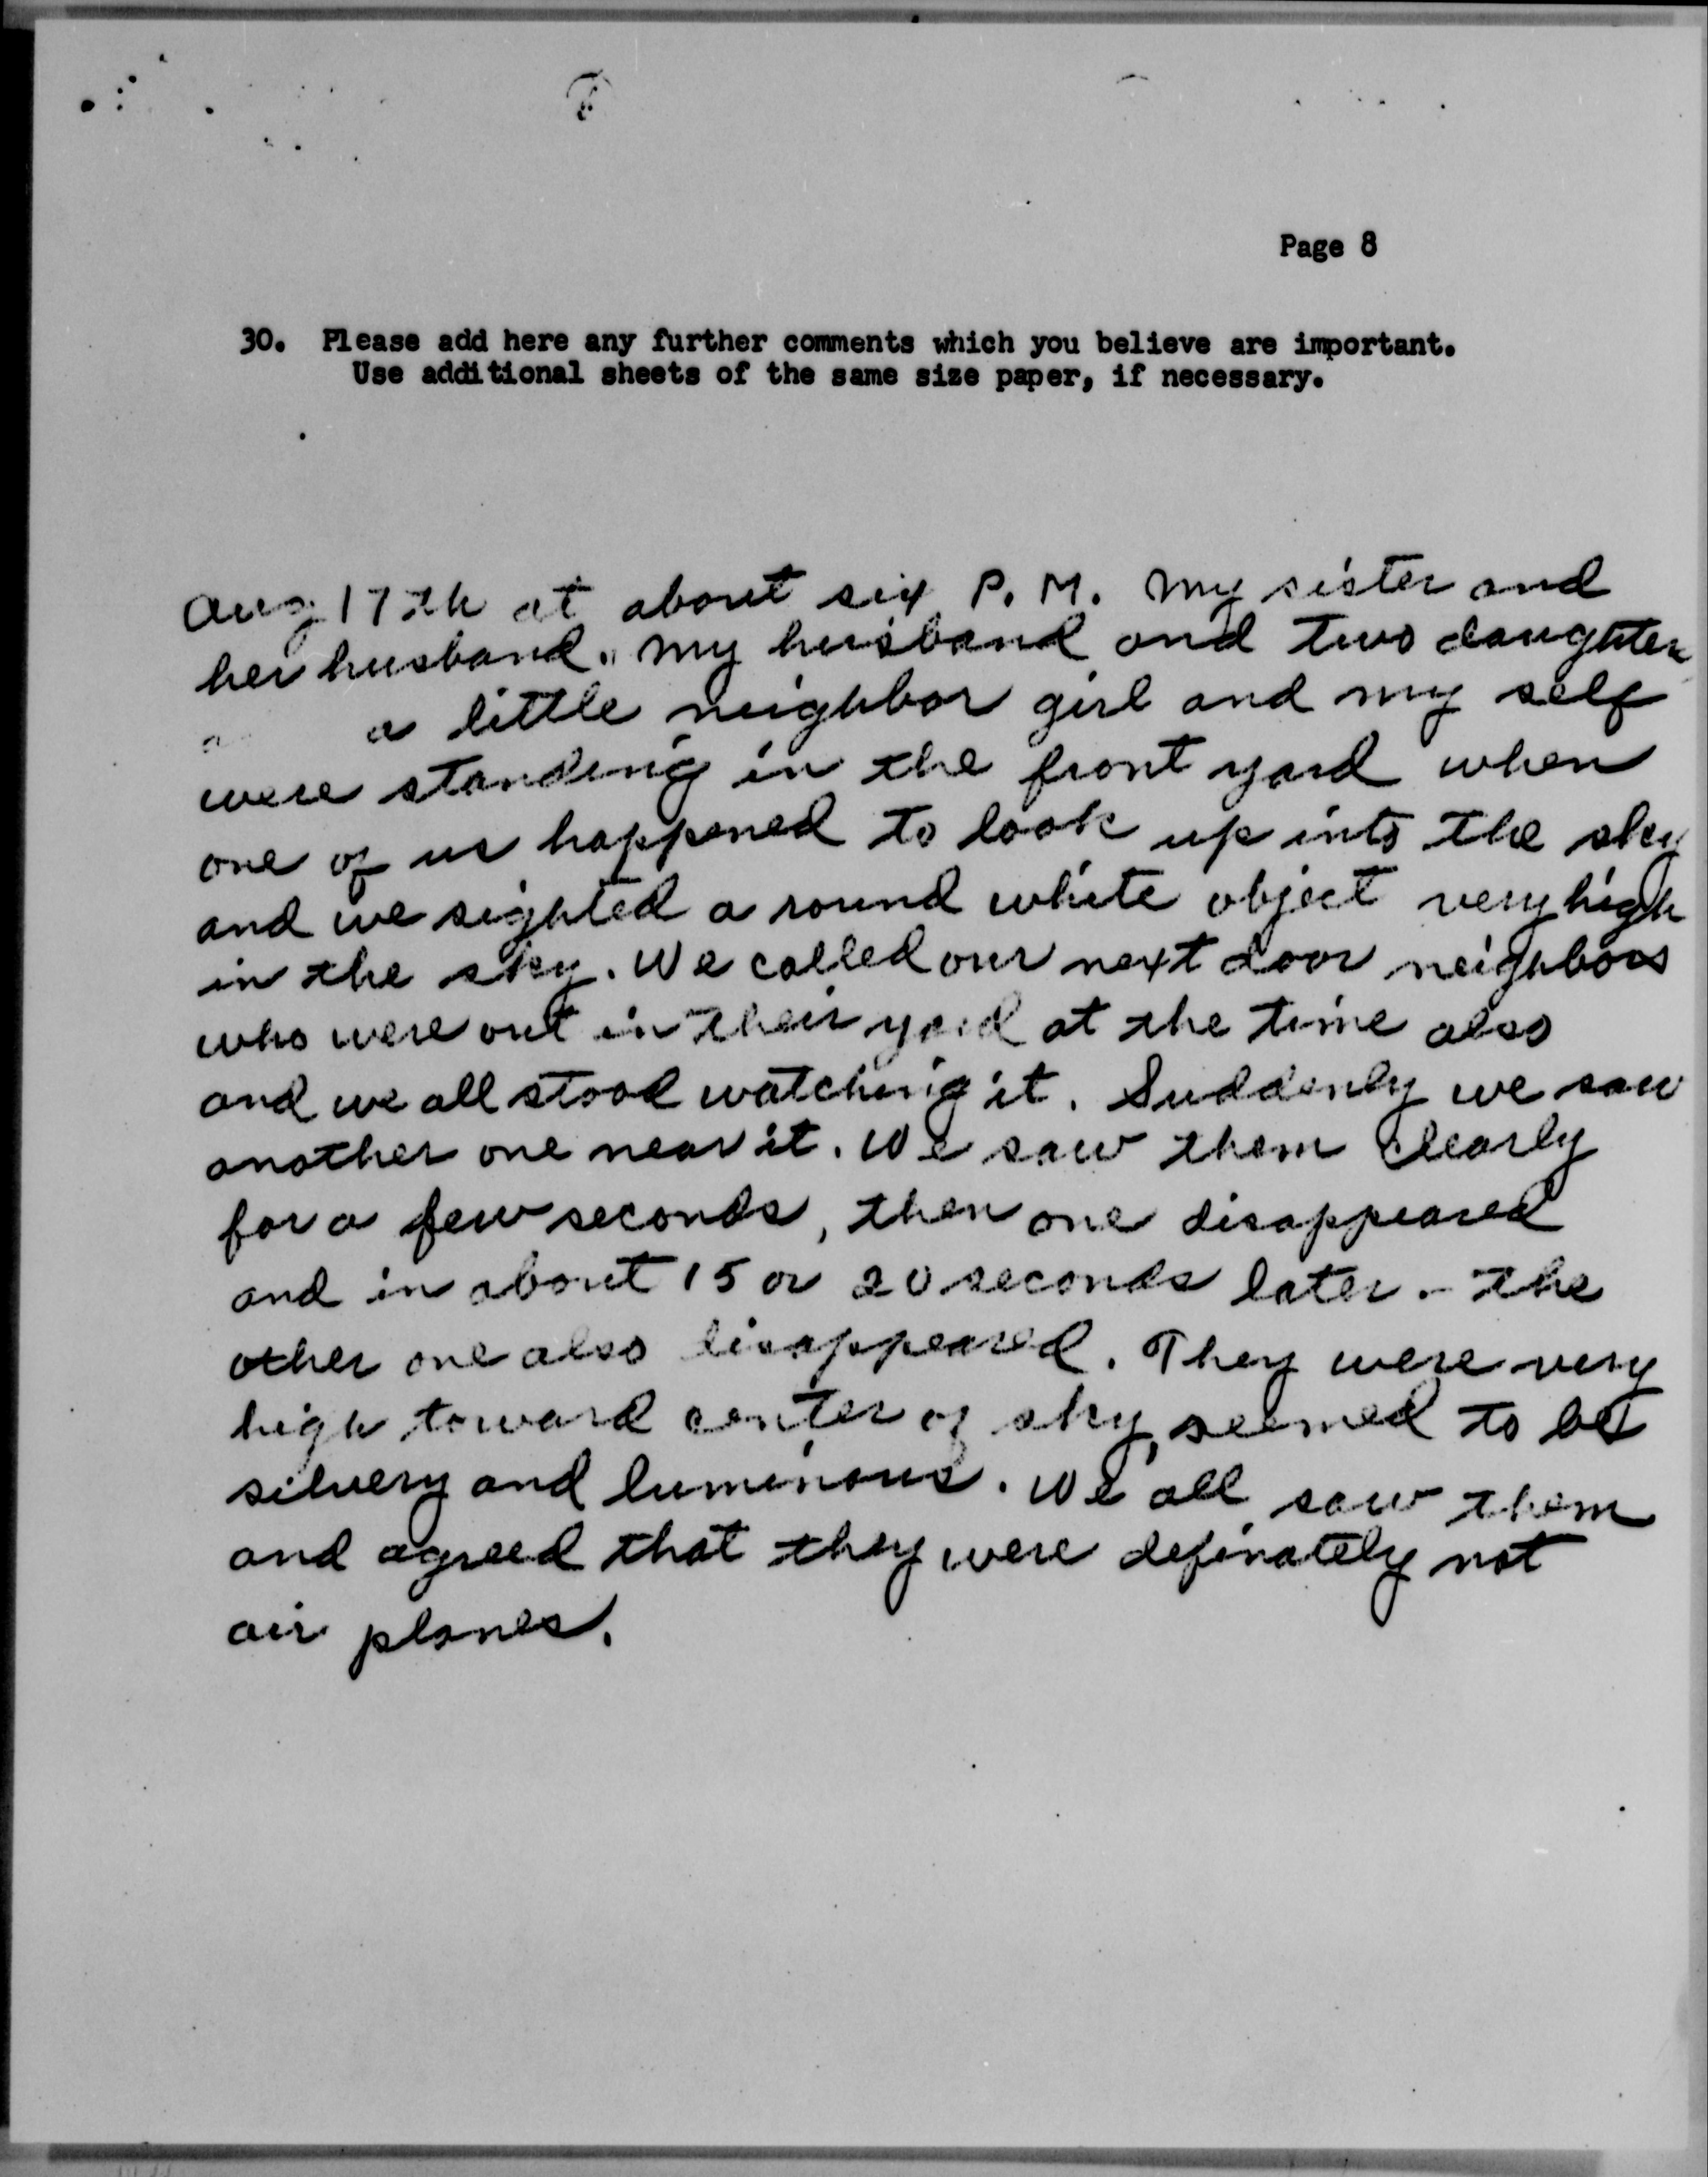 Page 8
30. Please add here any further comments which you believe are important.
Use additional sheets of the same size paper, if necessary.
Aug 17th at about six P.M. My sister and
her husband, my husband and two daughters
a little neighbor girl and my self
were standing in the front yard when
one of us happened to look up into the sky
and we sighted a round white object very high
in the sky. We called our next door neighbors
who were out in their yard at the time also
and we all stood watching it. Suddenly we saw
another one near it. We saw them clearly
for a few seconds, then one disappeared
and in about 15 or 20 seconds later - the
other one also disappeared. They were very
high toward center of sky, seemed to be
silvery and luminous. We all saw them
and agreed that they were definately not
air planes.